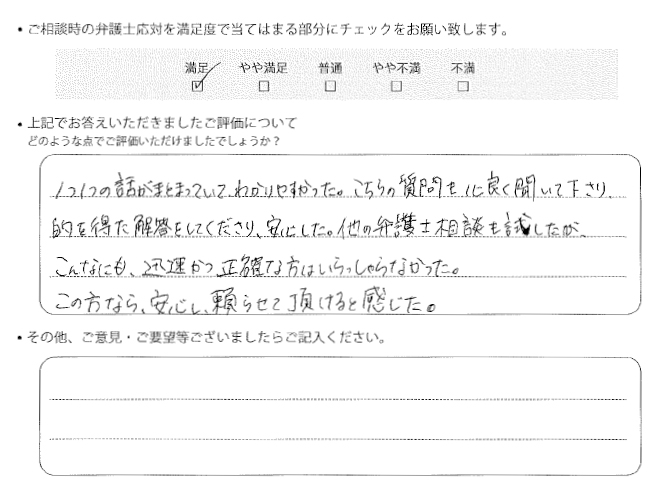 ・ご相談時の弁護士応対を満足度で当てはまる部分にチェックをお願い致します。
満足 やや満足 普通 やや不満 不満
・上記でお答えいただきましたご評価について
どのような点でご評価いただけましたでしょうか？
1つ1つの話がまとまっていて、わかりやすかった。こちらの質問も 良く聞いて下さり、
的を得た解答をしてくださり、安心した。他の弁護士相談も試したが、
こんなにも、迅速かつ正確な方はいらっしゃらなかった。
この方なら、安心し、頼らせて頂けると感じた。
・その他、ご意見・ご要望等ございましたらご記入ください。